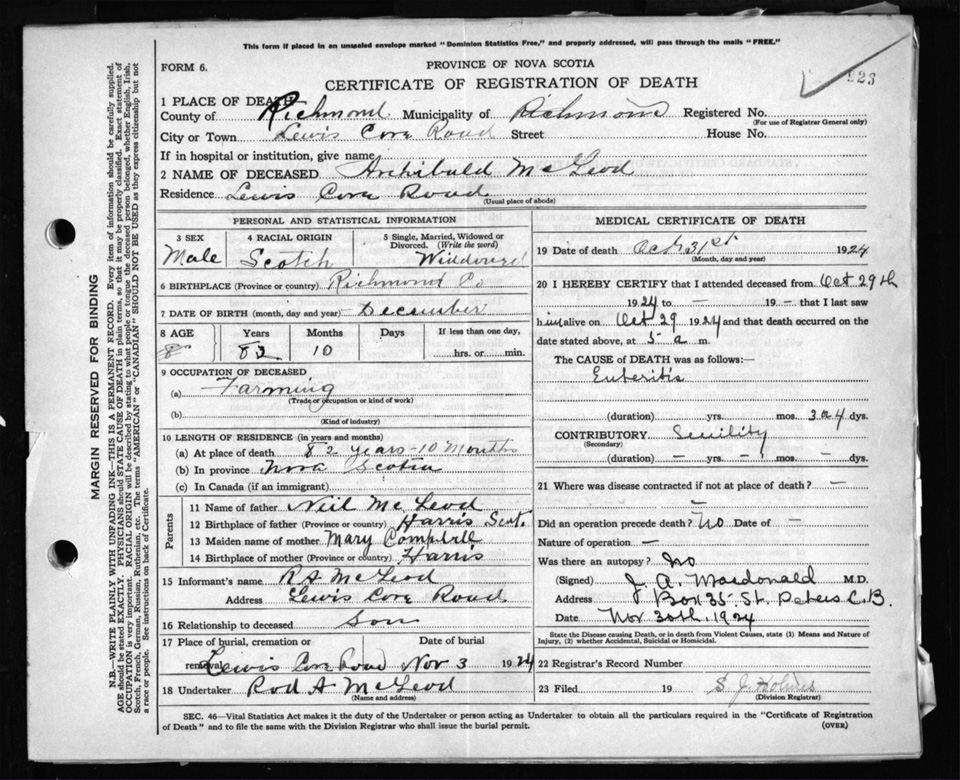 This form if placed in an unsealed envelope marked "Dominion Statistics Free," and properly addressed, will pass through the mails "FREE."
FORM 6.
PROVINCE OF NOVA SCOTIA
CERTIFICATE OF REGISTRATION OF DEATH
923
1 PLACE OF DEATH
County of Richmond Municipality of Richmond Registered No.
(For use of Registrar General only)
City or Town Lewis Cove Road Street House No.
If in hospital or institution, give name
2 NAME OF DECEASED Archibald McLeod
Residence Lewis Cove Road
(Usual place of abode)
PERSONAL AND STATISTICAL INFORMATION
3 SEX Male
4 RACIAL ORIGIN Scotch
5 Single, Married, Widowed or Divorced. (Write the word) Widdowed
6 BIRTHPLACE (Province or country) Richmond Co
7 DATE OF BIRTH (month, day and year) December
8 AGE Years Months Days If less than one day,
82 10 hrs. or min.
9 OCCUPATION OF DECEASED
(a) Farming
(Trade or occupation or kind of work)
(b)
(Kind of industry)
10 LENGTH OF RESIDENCE (in years and months)
(a) At place of death 82 years - 10 Months
(b) In province Nova Scotia
(c) In Canada (if an immigrant)
Parents
11 Name of father Neil McLeod
12 Birthplace of father (Province or country) Harris Scot.
13 Maiden name of mother Mary Campbell
14 Birthplace of mother (Province or country) Harris
15 Informant's name R A McLeod
Address Lewis Cove Road
16 Relationship to deceased Son
17 Place of burial, cremation or removal Date of burial
Lewis Cove Road Nov 3 1924
18 Undertaker Rod A McLeod
(Name and address)
MEDICAL CERTIFICATE OF DEATH
19 Date of death Oct 31st 1924
(Month, day and year)
20 I HEREBY CERTIFY that I attended deceased from Oct 29th
1924 to — 19 — that I last saw
him alive on Oct 29 1924 and that death occurred on the
date stated above, at 5 a m.
The CAUSE of DEATH was as follows:—
Enteritis
(duration) yrs. mos. 3 or 4 dys.
CONTRIBUTORY Senility
(Secondary)
(duration) — yrs. — mos. — dys.
21 Where was disease contracted if not at place of death? —
Did an operation precede death? No Date of —
Nature of operation —
Was there an autopsy? No
(Signed) J. A. Macdonald M.D.
Address Box 35. St. Peters C.B.
Date Nov 30th, 1924
State the Disease causing Death, or in death from Violent Causes, state (1) Means and Nature of
Injury, (2) whether Accidental, Suicidal or Homicidal.
22 Registrar's Record Number
23 Filed 19 S. J. Holmes
(Division Registrar)
SEC. 46—Vital Statistics Act makes it the duty of the Undertaker or person acting as Undertaker to obtain all the particulars required in the "Certificate of Registration
of Death" and to file the same with the Division Registrar who shall issue the burial permit.
(OVER)
MARGIN RESERVED FOR BINDING
N.B.—WRITE PLAINLY WITH UNFADING INK—THIS IS A PERMANENT RECORD. Every item of information should be carefully supplied.
AGE should be stated EXACTLY. PHYSICIANS should STATE CAUSE OF DEATH in plain terms, so that it may be properly classified. Exact statement of
OCCUPATION is very important. RACIAL ORIGIN will be described by stating to what people or tongue the deceased person belonged, whether English, Irish,
Scotch, French, German, Russian, Ruthenian, etc. The terms "AMERICAN" or "CANADIAN" SHOULD NOT BE USED as they express citizenship but not
a race or people. See instructions on back of Certificate.